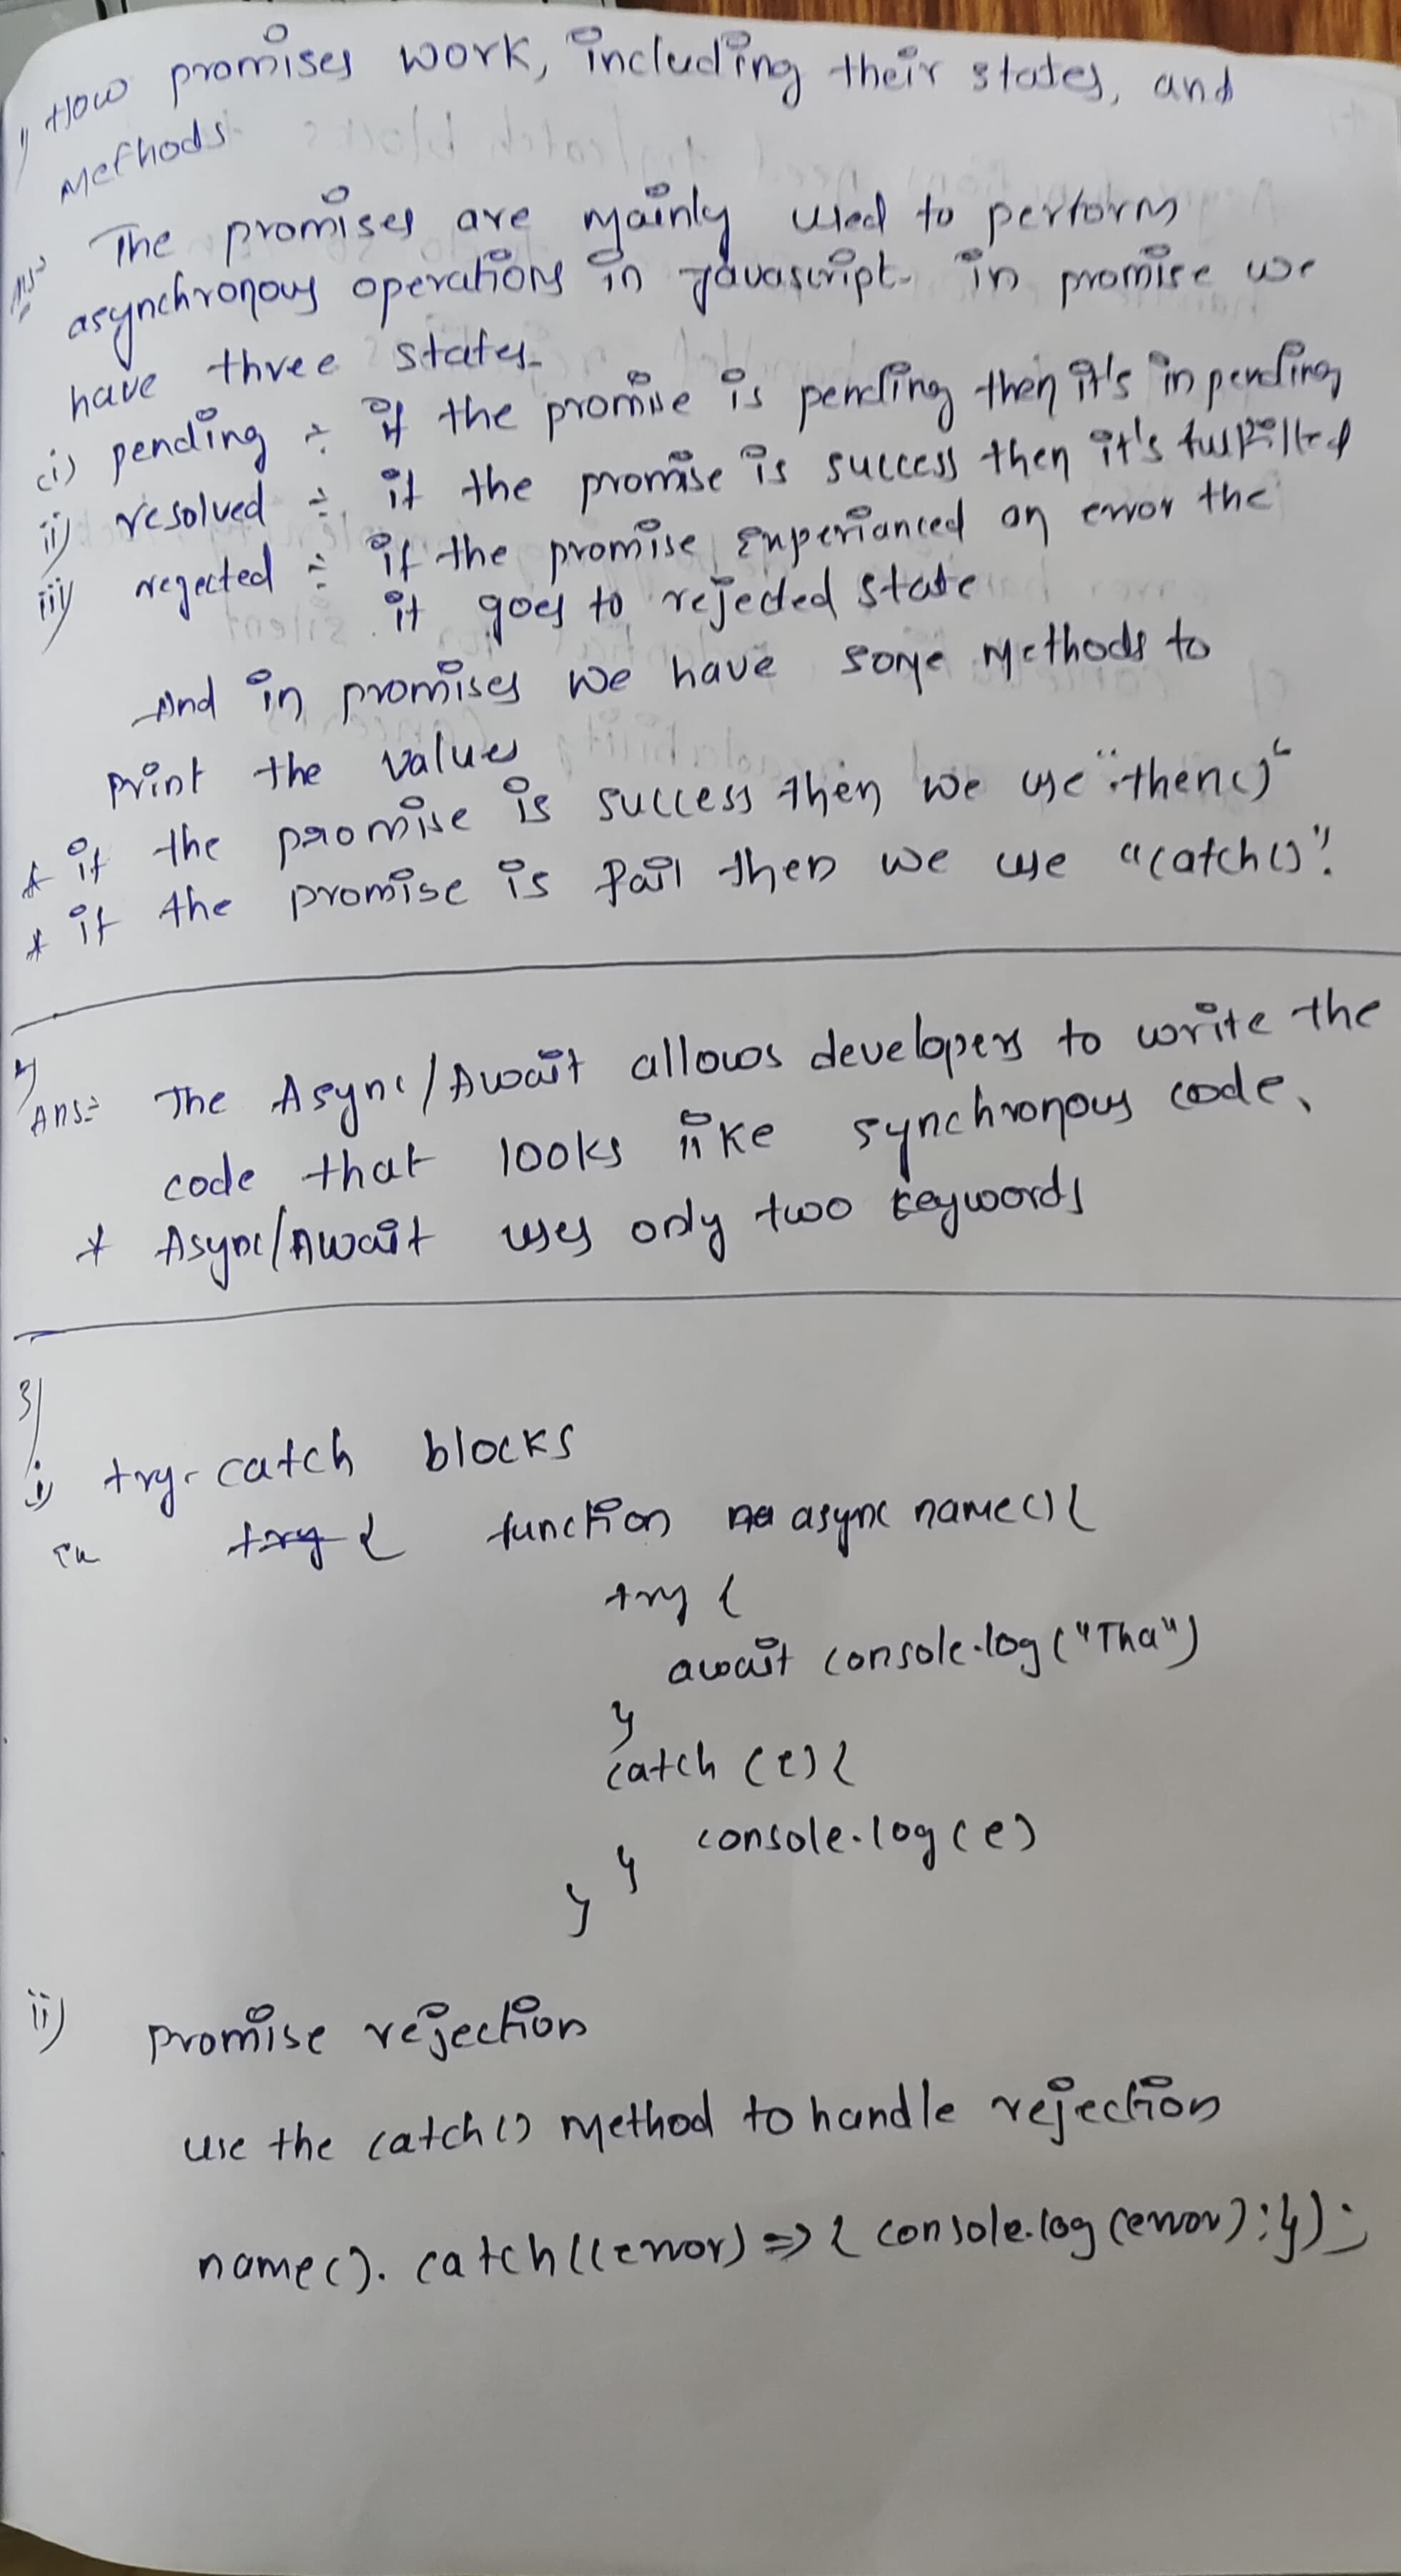 1) How promises work, including their states, and
Methods
Ans:- The promises are mainly used to perform
asynchronous operations in Javascript. in promise we
have three states.
(i) pending :- if the promise is pending then it's in pending
ii) resolved :- if the promise is success then it's fulfilled
iii) rejected :- if the promise experianced an error the
it goes to rejected state
And in promises we have some methods to
print the values
* if the promise is success then we use ".then()"
* if the promise is fail then we use "catch()".
Ans:- The Async/Await allows developers to write the
code that looks like synchronous code.
* Async/Await uses only two keywords
3)
i) try-catch blocks
try { function async name() {
try {
await console.log("Tha")
}
catch (e) {
console.log(e)
}
}
ii) promise rejection
use the catch() method to handle rejection
name(). catch((error) => { console.log(error); });